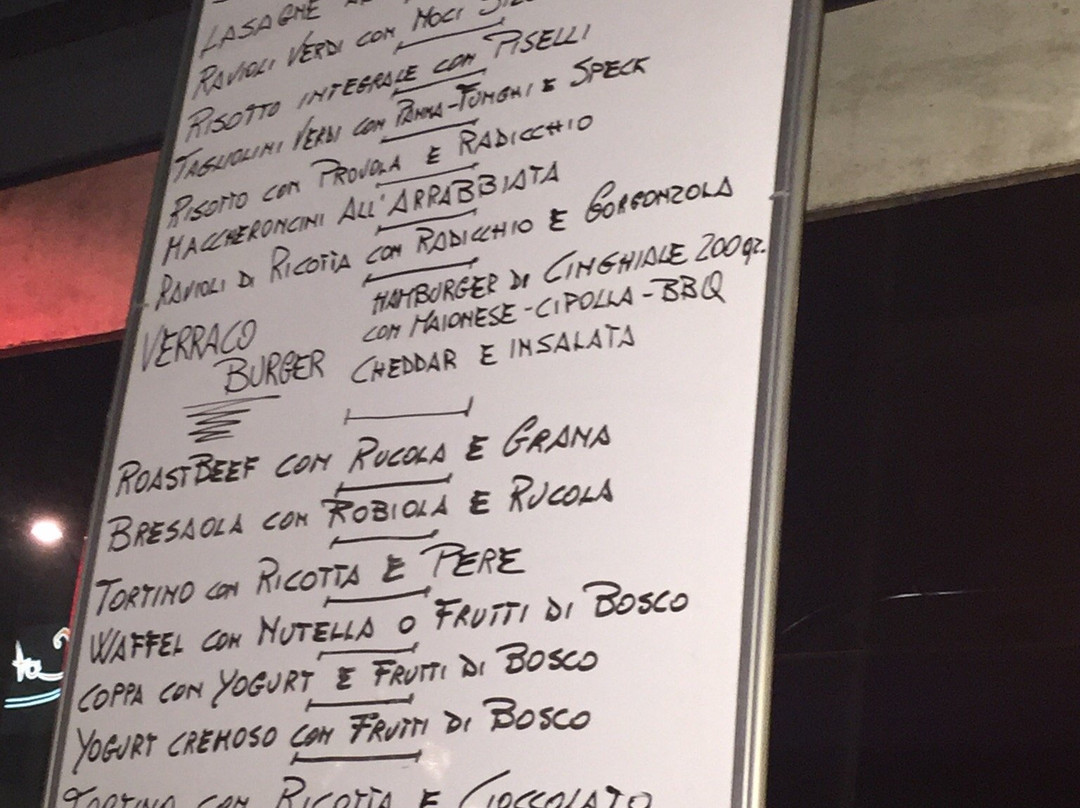 LASAGNE
RAVIOLI VERDI CON NOCI
RISOTTO INTEGRALE CON PISELLI
TAGLIOLINI VERDI CON PANNA-FUNGHI E SPECK
RISOTTO CON PROVOLA E RADICCHIO
MACCHERONCINI ALL'ARRABBIATA
RAVIOLI DI RICOTTA CON RADICCHIO E GORGONZOLA
VERRACO BURGER
HAMBURGER DI CINGHIALE 200gr.
CON MAIONESE-CIPOLLA-BBQ
CHEDDAR E INSALATA
ROASTBEEF CON RUCOLA E GRANA
BRESAOLA CON ROBIOLA E RUCOLA
TORTINO CON RICOTTA E PERE
WAFFEL CON NUTELLA O FRUTTI DI BOSCO
COPPA CON YOGURT E FRUTTI DI BOSCO
YOGURT CREMOSO CON FRUTTI DI BOSCO
TORTINO CON RICOTTA E CIOCCOLATO